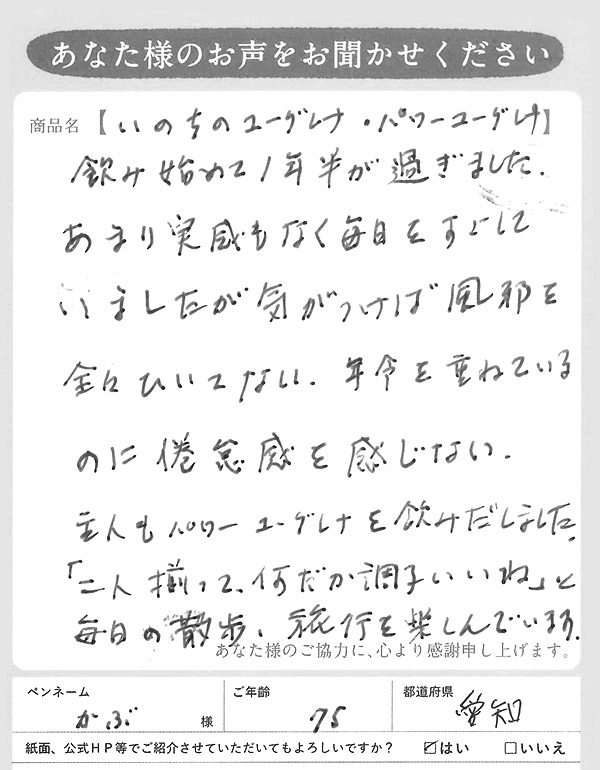 あなた様のお声をお聞かせください
商品名【いのちのユーグレナ・パワーユーグレナ】
飲み始めて1年半が過ぎました.
あまり実感もなく毎日をすごして
いましたが気がつけば風邪を
全々ひいてない.年令を重ねている
のに倦怠感を感じない.
主人もパワーユーグレナを飲みだしました.
「二人揃って、何だか調子いいね」と
毎日の散歩、旅行を楽しんでいます.
あなた様のご協力に、心より感謝申し上げます。
ペンネーム かぶ 様 ご年齢 75 都道府県 愛知
紙面、公式HP等でご紹介させていただいてもよろしいですか? ☑はい □いいえ